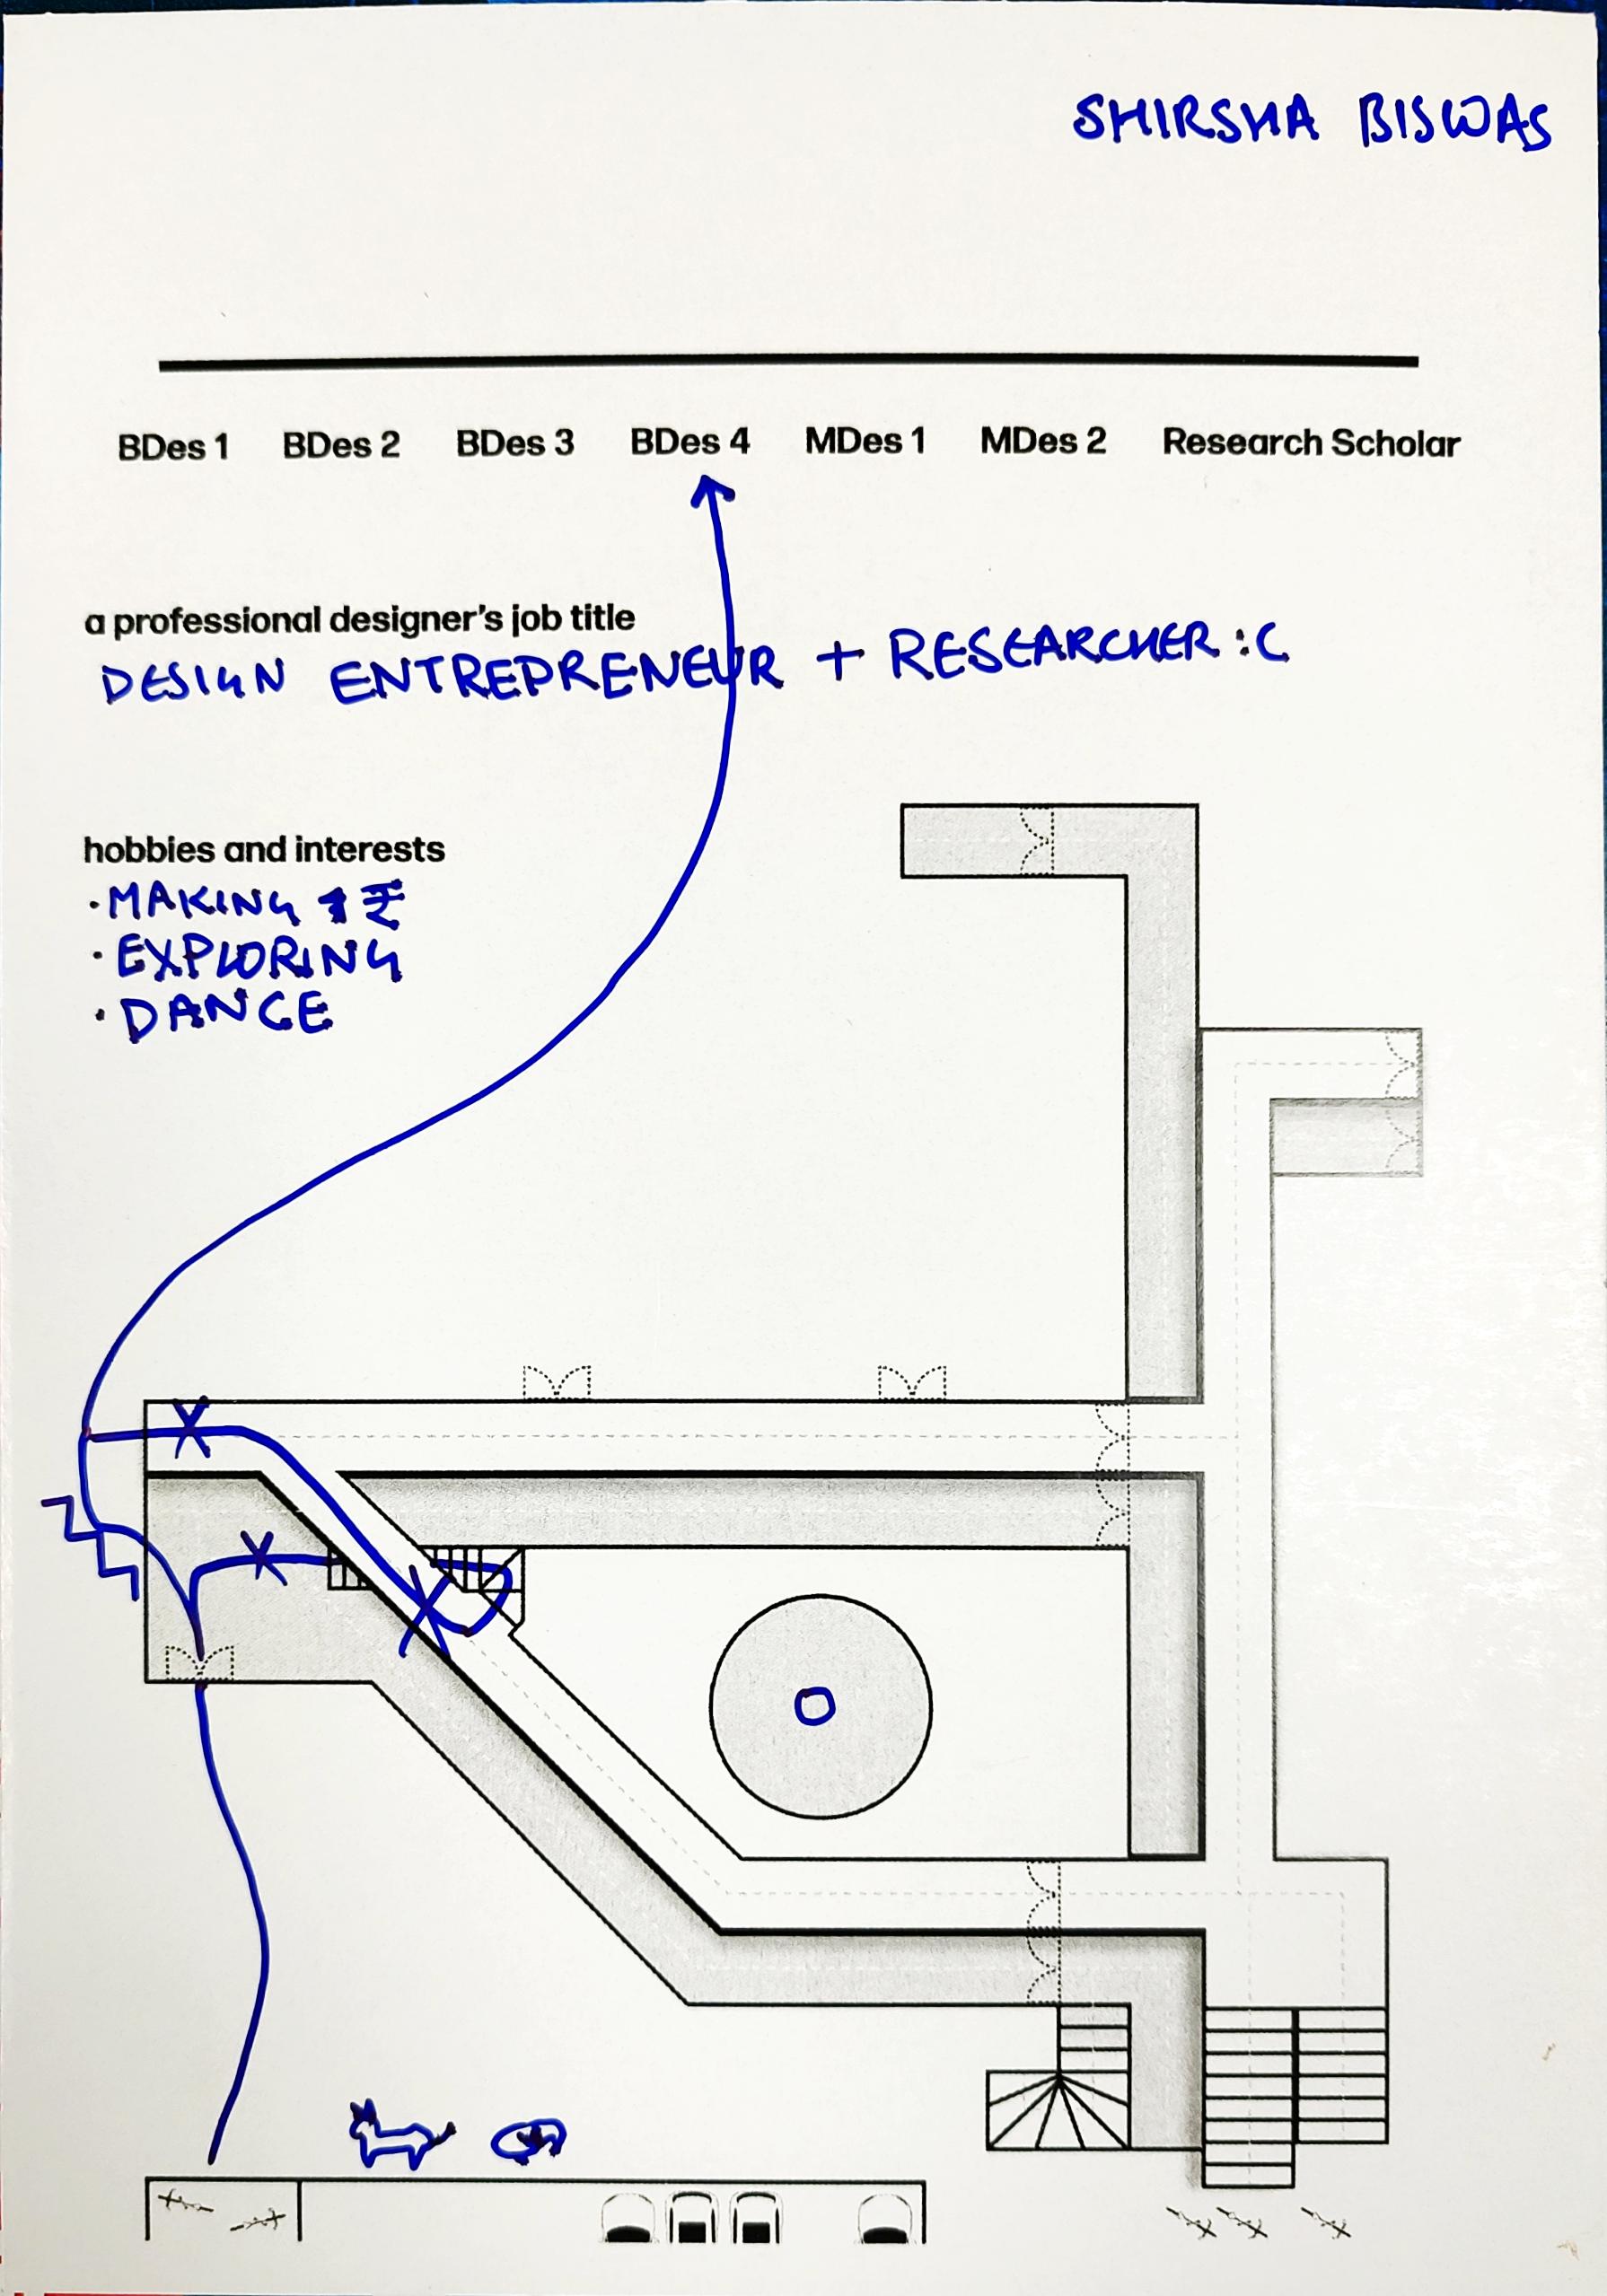 SHIRSHA BISWAS
BDes 1 BDes 2 BDes 3 BDes 4 MDes 1 MDes 2 Research Scholar
a professional designer's job title
DESIGN ENTREPRENEUR + RESEARCHER :C
hobbies and interests
· MAKING ₹
· EXPLORING
· DANCE